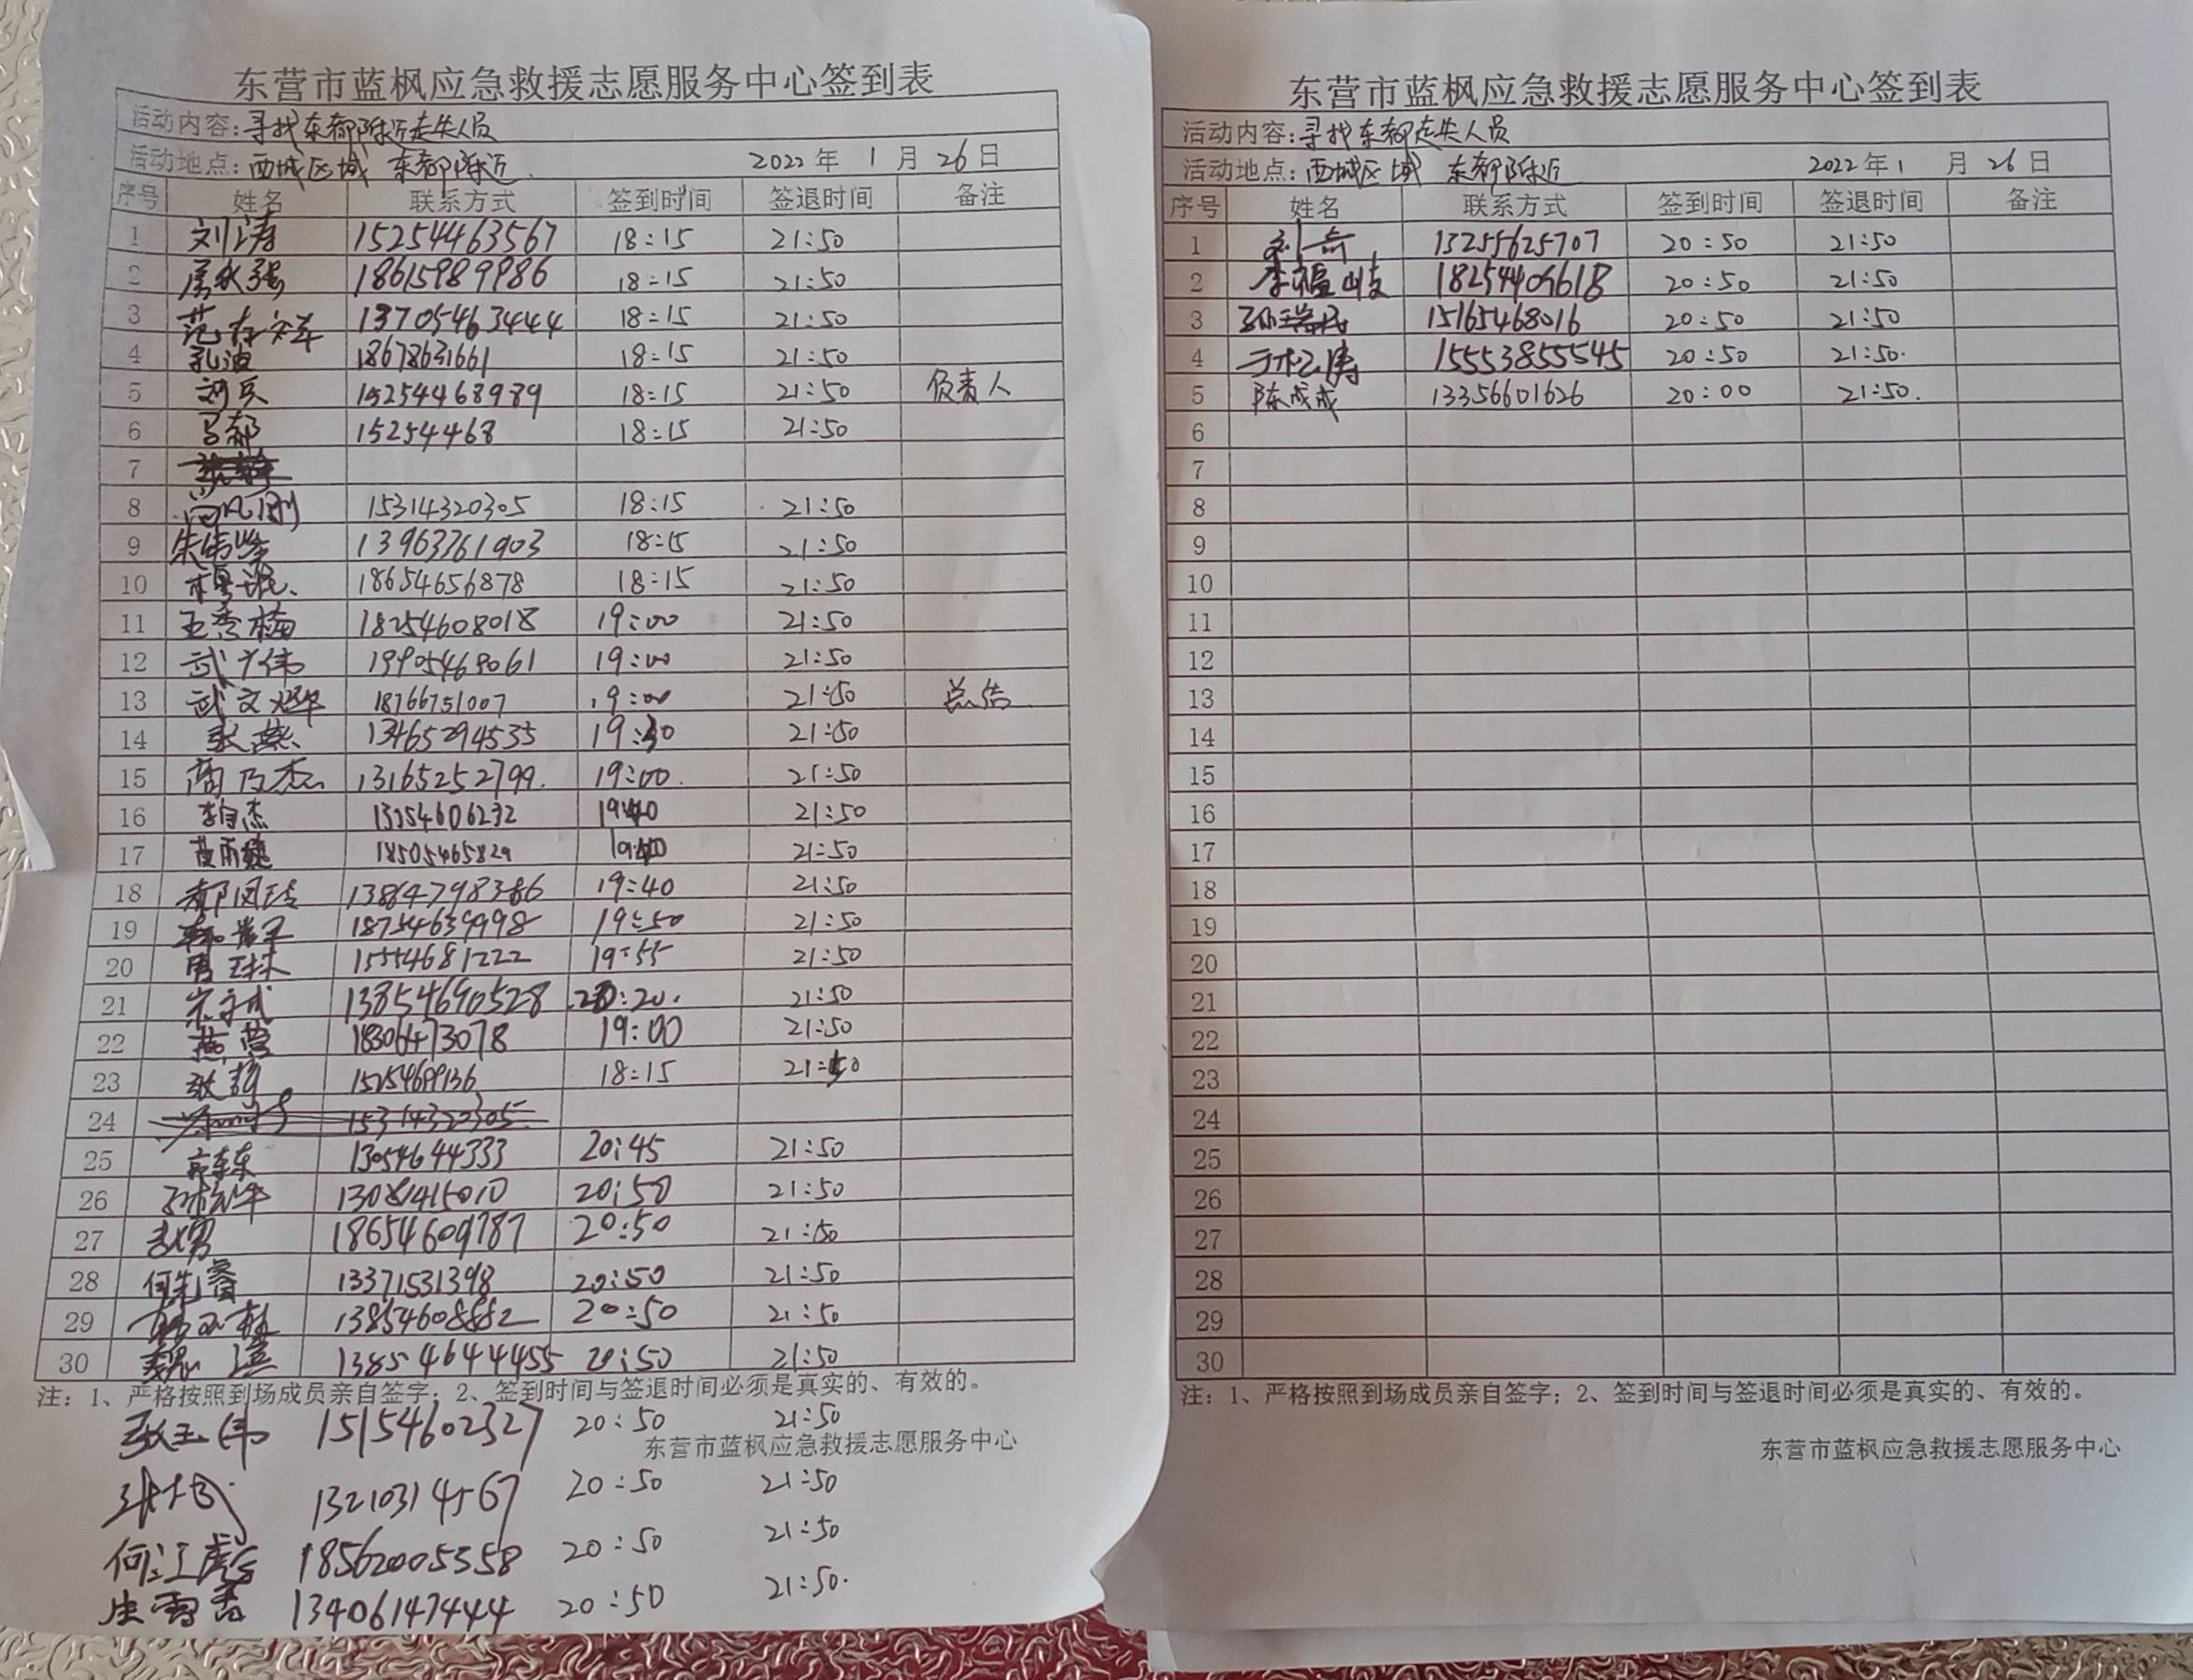 东营市蓝枫应急救援志愿服务中心签到表
活动内容:寻找东都附近走失人员
活动地点:西城区域 东都附近 2022年 1月 26日
序号 姓名 联系方式 签到时间 签退时间 备注
1 刘涛 15254463567 18:15 21:50
2 18615989986 18:15 21:50
3 13705463444 18:15 21:50
4 孔波 18678631661 18:15 21:50
5 刘兵 15254468989 18:15 21:50 负责人
6 15254468 18:15 21:50
7
8 15314320305 18:15 21:50
9 13963761903 18:15 21:50
10 18654656878 18:15 21:50
11 王秀梅 18254608018 19:00 21:50
12 武广伟 19905468061 19:00 21:50
13 武文烨 18766751007 19:00 21:50 总结
14 张燕 13465294535 19:30 21:50
15 商乃杰 13165252799. 19:00. 21:50
16 李自杰 19:40 21:50
17 18505465829 19:40 21:50
18 郝凤玲 13864798386 19:40 21:50
19 18754639998 19:50 21:50
20 15554681222 19:55 21:50
21 宋守成 13854690528 20:20. 21:50
22 燕营 18306473078 19:00 21:50
23 张静 15254699136 18:15 21:50
24 15314320305
25 13054644333 20:45 21:50
26 13081415010 20:50 21:50
27 赵男 18654609787 20:50 21:50
28 何先睿 13371531398 20:50 21:50
29 13854608882 20:50 21:50
30 13854644455 20:50 21:50
注:1、严格按照到场成员亲自签字;2、签到时间与签退时间必须是真实的、有效的。
张玉伟 15154602327 20:50 21:50
东营市蓝枫应急救援志愿服务中心
13210314567 20:50 21:50
何江虎 18562005358 20:50 21:50
13406147444 20:50 21:50.
东营市蓝枫应急救援志愿服务中心签到表
活动内容:寻找东都走失人员
活动地点:西城区域 东都附近 2022年1 月 26日
序号 姓名 联系方式 签到时间 签退时间 备注
1 刘奇 13255625707 20:50 21:50
2 李福岐 18254409618 20:50 21:50
3 15165468016 20:50 21:50
4 于松涛 15553855545 20:50 21:50.
5 陈成成 13356601626 20:00 21:50.
6
7
8
9
10
11
12
13
14
15
16
17
18
19
20
21
22
23
24
25
26
27
28
29
30
注:1、严格按照到场成员亲自签字;2、签到时间与签退时间必须是真实的、有效的。
东营市蓝枫应急救援志愿服务中心